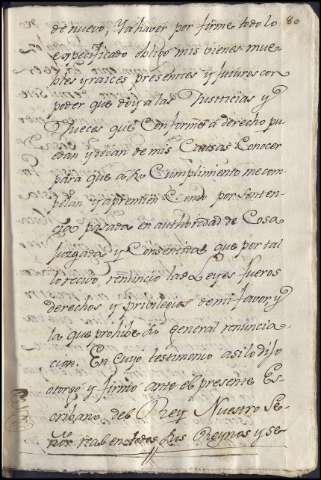 80
de nuevo, y a haver por firme todo lo
expecificado obligo mis vienes mue-
bles y raices presentes y futuros con
poder que doy a las Justicias y
Jueces que Conforme a derecho pu-
edan y devan de mis Causas Conocer
para que a su Cumplimiento me com-
pelan y apremien Como por senten-
cia pasada en authoridad de Cosa
Juzgada y Consentida que por tal
lo recivo, renuncio las Leyes fueros
derechos y privilegios de mi favor y
la que prohibe la general renuncia-
cion. En cuyo testimonio asi lo digo
otorgo y firmo ante el presente Es-
cribano del Rey Nuestro Se-
ñor real en todos sus Reynos y se